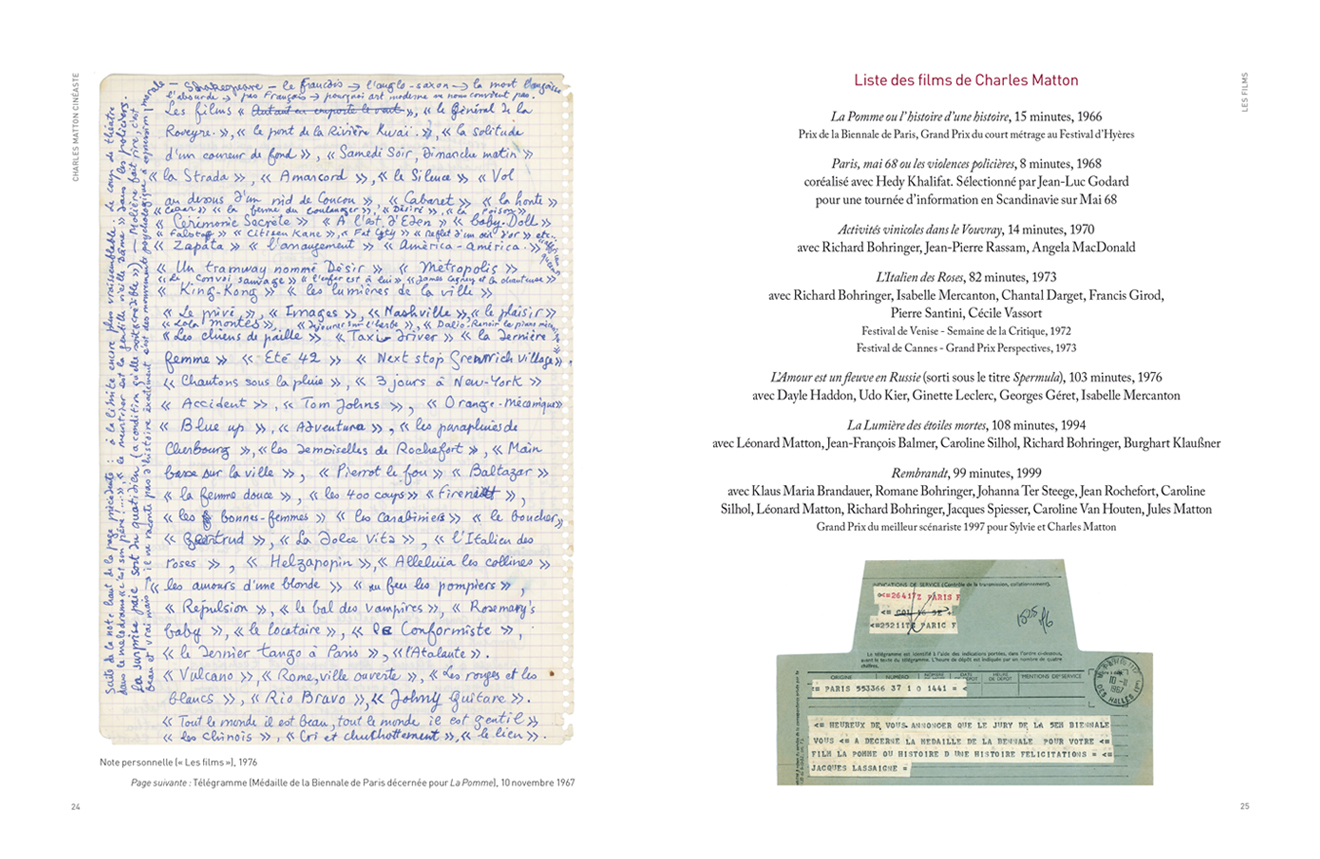 CHARLES MATTON CINÉASTE
— Shakespeare — le français → l'anglo-saxon → la mort
l'absurde → pas Français → pourquoi art moderne ou nous convient pas.
Les films « Autant en emporte le vent », « le Général de la
Roveyre. », « le pont de la Rivière Kwaï. », « la solitude
d'un coureur de fond », « Samedi Soir, Dimanche matin »
« la Strada », « Amarcord », « le Silence » « Vol
au dessus d'un nid de Coucou », « Cabaret » « la honte »
« César » « la femme du boulanger », « Désiré », « la Poison »
« Cérémonie Secrète » « A l'est d'Eden » « baby-Doll »
« Falstaff » « Citisen Kane », « Fat City » « Reflet d'un œil d'or » etc
« Zapata » « l'arrangement » « América-américa. »
« Un tramway nommé Désir » « Métropolis »
« le Convoi sauvage » « l'enfer est à lui », « James Cagney et la chanteuse »
« King-Kong » « les lumières de la ville »
« Le privé », « Images », « Nashville », « le plaisir »
« Lola montès », « Déjeuner sur l'herbe »,
« Les chiens de paille » « Taxi Driver » « la dernière
femme » « Eté 42 » « Next stop Grenwich village »,
« Chantons sous la pluie », « 3 jours à New-York »
« Accident », « Tom Johns », « Orange-Mécanique »
« Blue up », « Adventura », « les parapluies de
Cherbourg », « les Demoiselles de Rochefort », « Main
basse sur la ville », « Pierrot le fou » « Baltazar »
« la femme douce », « les 400 coups »
« les bonnes-femmes » « les Carabiniers » « le boucher »
« Gertrud », « La Dolce Vita », « l'Italien des
roses », « Helzapopin », « Alleluia les collines »
« les amours d'une blonde » « au feu les pompiers »,
« Répulsion », « le bal des vampires », « Rosemary's
baby », « le locataire », « le Conformiste »,
« le Dernier tango à Paris », « l'Atalante ».
« Vulcano », « Rome, ville ouverte », « Les rouges et les
blancs », « Rio Bravo », « Johny Guitare ».
« Tout le monde il est beau, tout le monde il est gentil »
« les chinois », « Cri et chuchottement », « le lien ».
Note personnelle (« Les films »), 1976
Page suivante : Télégramme (Médaille de la Biennale de Paris décernée pour La Pomme), 10 novembre 1967
24
LES FILMS
Liste des films de Charles Matton
La Pomme ou l'histoire d'une histoire, 15 minutes, 1966
Prix de la Biennale de Paris, Grand Prix du court métrage au Festival d'Hyères
Paris, mai 68 ou les violences policières, 8 minutes, 1968
coréalisé avec Hedy Khalifat. Sélectionné par Jean-Luc Godard
pour une tournée d'information en Scandinavie sur Mai 68
Activités vinicoles dans le Vouvray, 14 minutes, 1970
avec Richard Bohringer, Jean-Pierre Rassam, Angela MacDonald
L'Italien des Roses, 82 minutes, 1973
avec Richard Bohringer, Isabelle Mercanton, Chantal Darget, Francis Girod,
Pierre Santini, Cécile Vassort
Festival de Venise - Semaine de la Critique, 1972
Festival de Cannes - Grand Prix Perspectives, 1973
L'Amour est un fleuve en Russie (sorti sous le titre Spermula), 103 minutes, 1976
avec Dayle Haddon, Udo Kier, Ginette Leclerc, Georges Géret, Isabelle Mercanton
La Lumière des étoiles mortes, 108 minutes, 1994
avec Léonard Matton, Jean-François Balmer, Caroline Silhol, Richard Bohringer, Burghart Klaußner
Rembrandt, 99 minutes, 1999
avec Klaus Maria Brandauer, Romane Bohringer, Johanna Ter Steege, Jean Rochefort, Caroline
Silhol, Léonard Matton, Richard Bohringer, Jacques Spiesser, Caroline Van Houten, Jules Matton
Grand Prix du meilleur scénariste 1997 pour Sylvie et Charles Matton
INDICATIONS DE SERVICE (Contrôle de la transmission, collationnement).
<=26417Z PARIS F
<=25211T PARIC F
Le télégramme est identifié à l'aide des indications portées, dans l'ordre ci-dessous,
avant le texte du télégramme. L'heure de dépôt est indiquée par un nombre de quatre
chiffres.
ORIGINE NUMÉRO NOMBRE DATE HEURE DE DÉPÔT MENTIONS DE SERVICE
= PARIS 553366 37 10 1441 = <
<= HEUREUX DE VOUS ANNONCER QUE LE JURY DE LA 5EM BIENNALE
VOUS <= A DECERNE LA MEDAILLE DE LA BIENNALE POUR VOTRE <=
FILM LA POMME OU HISTOIRE D UNE HISTOIRE FELICITATIONS = <=
JACQUES LASSAIGNE =
25